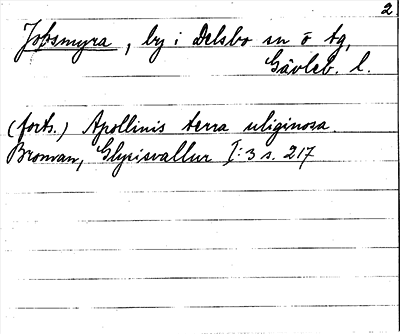 2
Jobsmyra, by i Delsbo sn o tg,
Gävleb. l.
(forts.) Apollinis terra uliginosa.
Broman, Glysisvallur I:3 s. 217